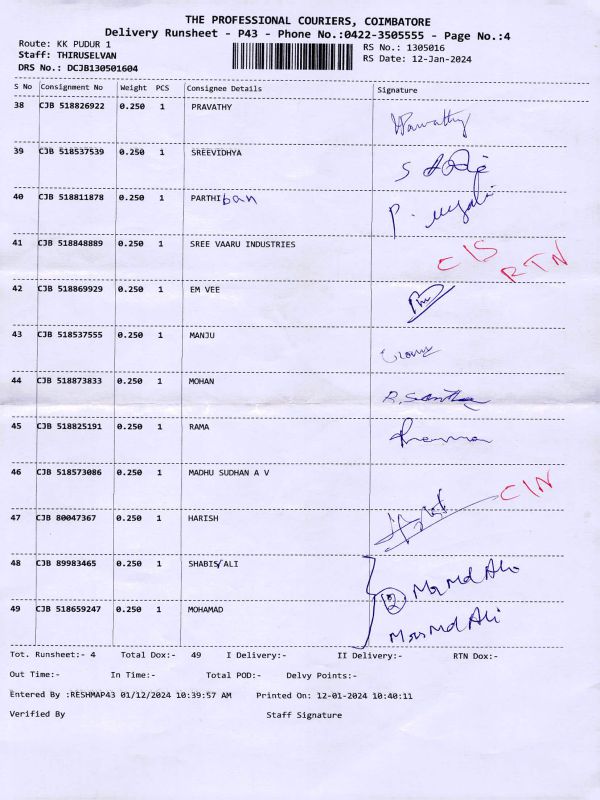 THE PROFESSIONAL COURIERS, COIMBATORE
Delivery Runsheet - P43 - Phone No.:0422-3505555 - Page No.:4
Route: KK PUDUR 1
RS No.: 1305016
Staff: THIRUSELVAN
RS Date: 12-Jan-2024
DRS No.: DCJB130501604
S No Consignment No Weight PCS Consignee Details Signature
38 CJB 518826922 0.250 1 PRAVATHY
39 CJB 518537539 0.250 1 SREEVIDHYA
40 CJB 518811878 0.250 1 PARTHIban
41 CJB 518848889 0.250 1 SREE VAARU INDUSTRIES C/S RTN
42 CJB 518869929 0.250 1 EM VEE
43 CJB 518537555 0.250 1 MANJU
44 CJB 518873833 0.250 1 MOHAN R. Santha
45 CJB 518825191 0.250 1 RAMA
46 CJB 518573086 0.250 1 MADHU SUDHAN A V C/N
47 CJB 80047367 0.250 1 HARISH
48 CJB 89983465 0.250 1 SHABIS/ALI
49 CJB 518659247 0.250 1 MOHAMAD
Tot. Runsheet:- 4 Total Dox:- 49 I Delivery:- II Delivery:- RTN Dox:-
Out Time:- In Time:- Total POD:- Delvy Points:-
Entered By :RESHMAP43 01/12/2024 10:39:57 AM Printed On: 12-01-2024 10:40:11
Verified By Staff Signature